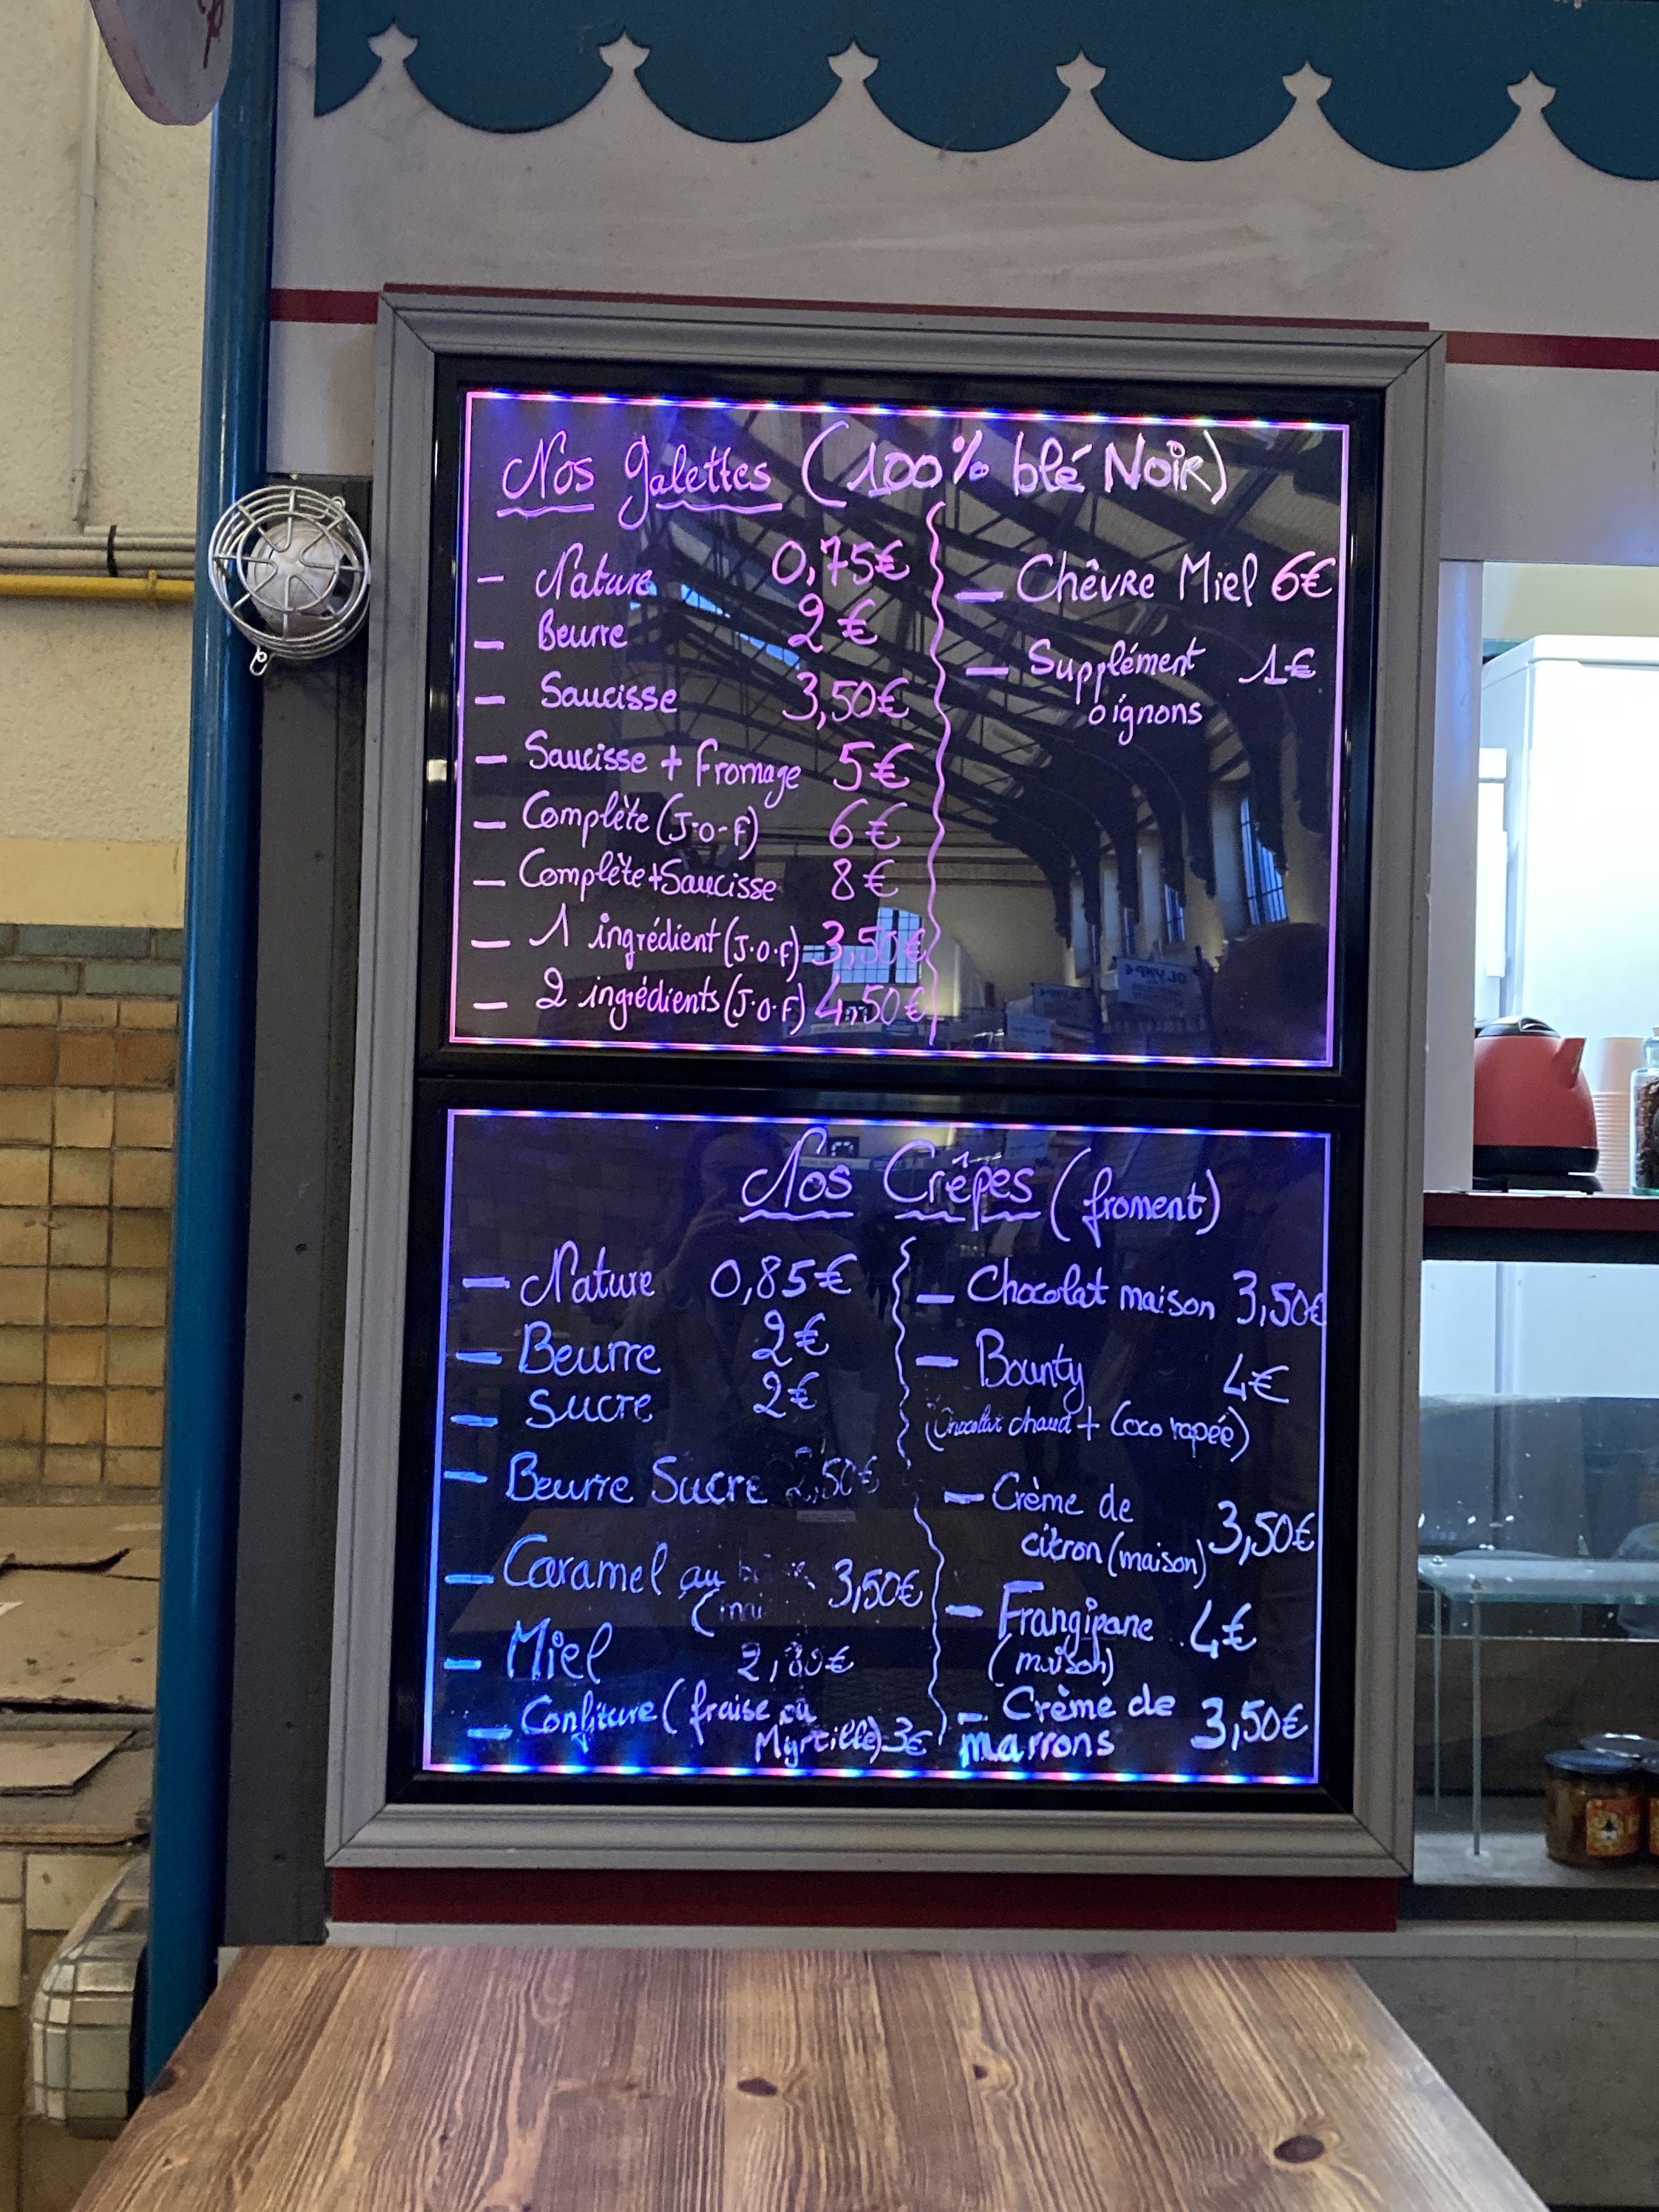 Nos galettes (100% blé Noir)
- Nature 0,75€
- Beurre 2€
- Saucisse 3,50€
- Saucisse + fromage 5€
- Complète (J-o-f) 6€
- Complète+Saucisse 8€
- 1 ingrédient (J.o.f) 3,50€
- 2 ingrédients (J.o.f) 4,50€
- Chêvre Miel 6€
- Supplément 1€
oignons
Nos Crêpes (froment)
- Nature 0,85€
- Beurre 2€
- Sucre 2€
- Beurre Sucre 2,50€
- Caramel au 3,50€
- Miel
- Confiture (fraise ou
Myrtille) 3€
- Chocolat maison 3,50€
- Bounty 4€
(Chocolat chaud + Coco rapée)
- Crème de
citron (maison) 3,50€
- Frangipane 4€
(maison)
- Crème de
marrons 3,50€